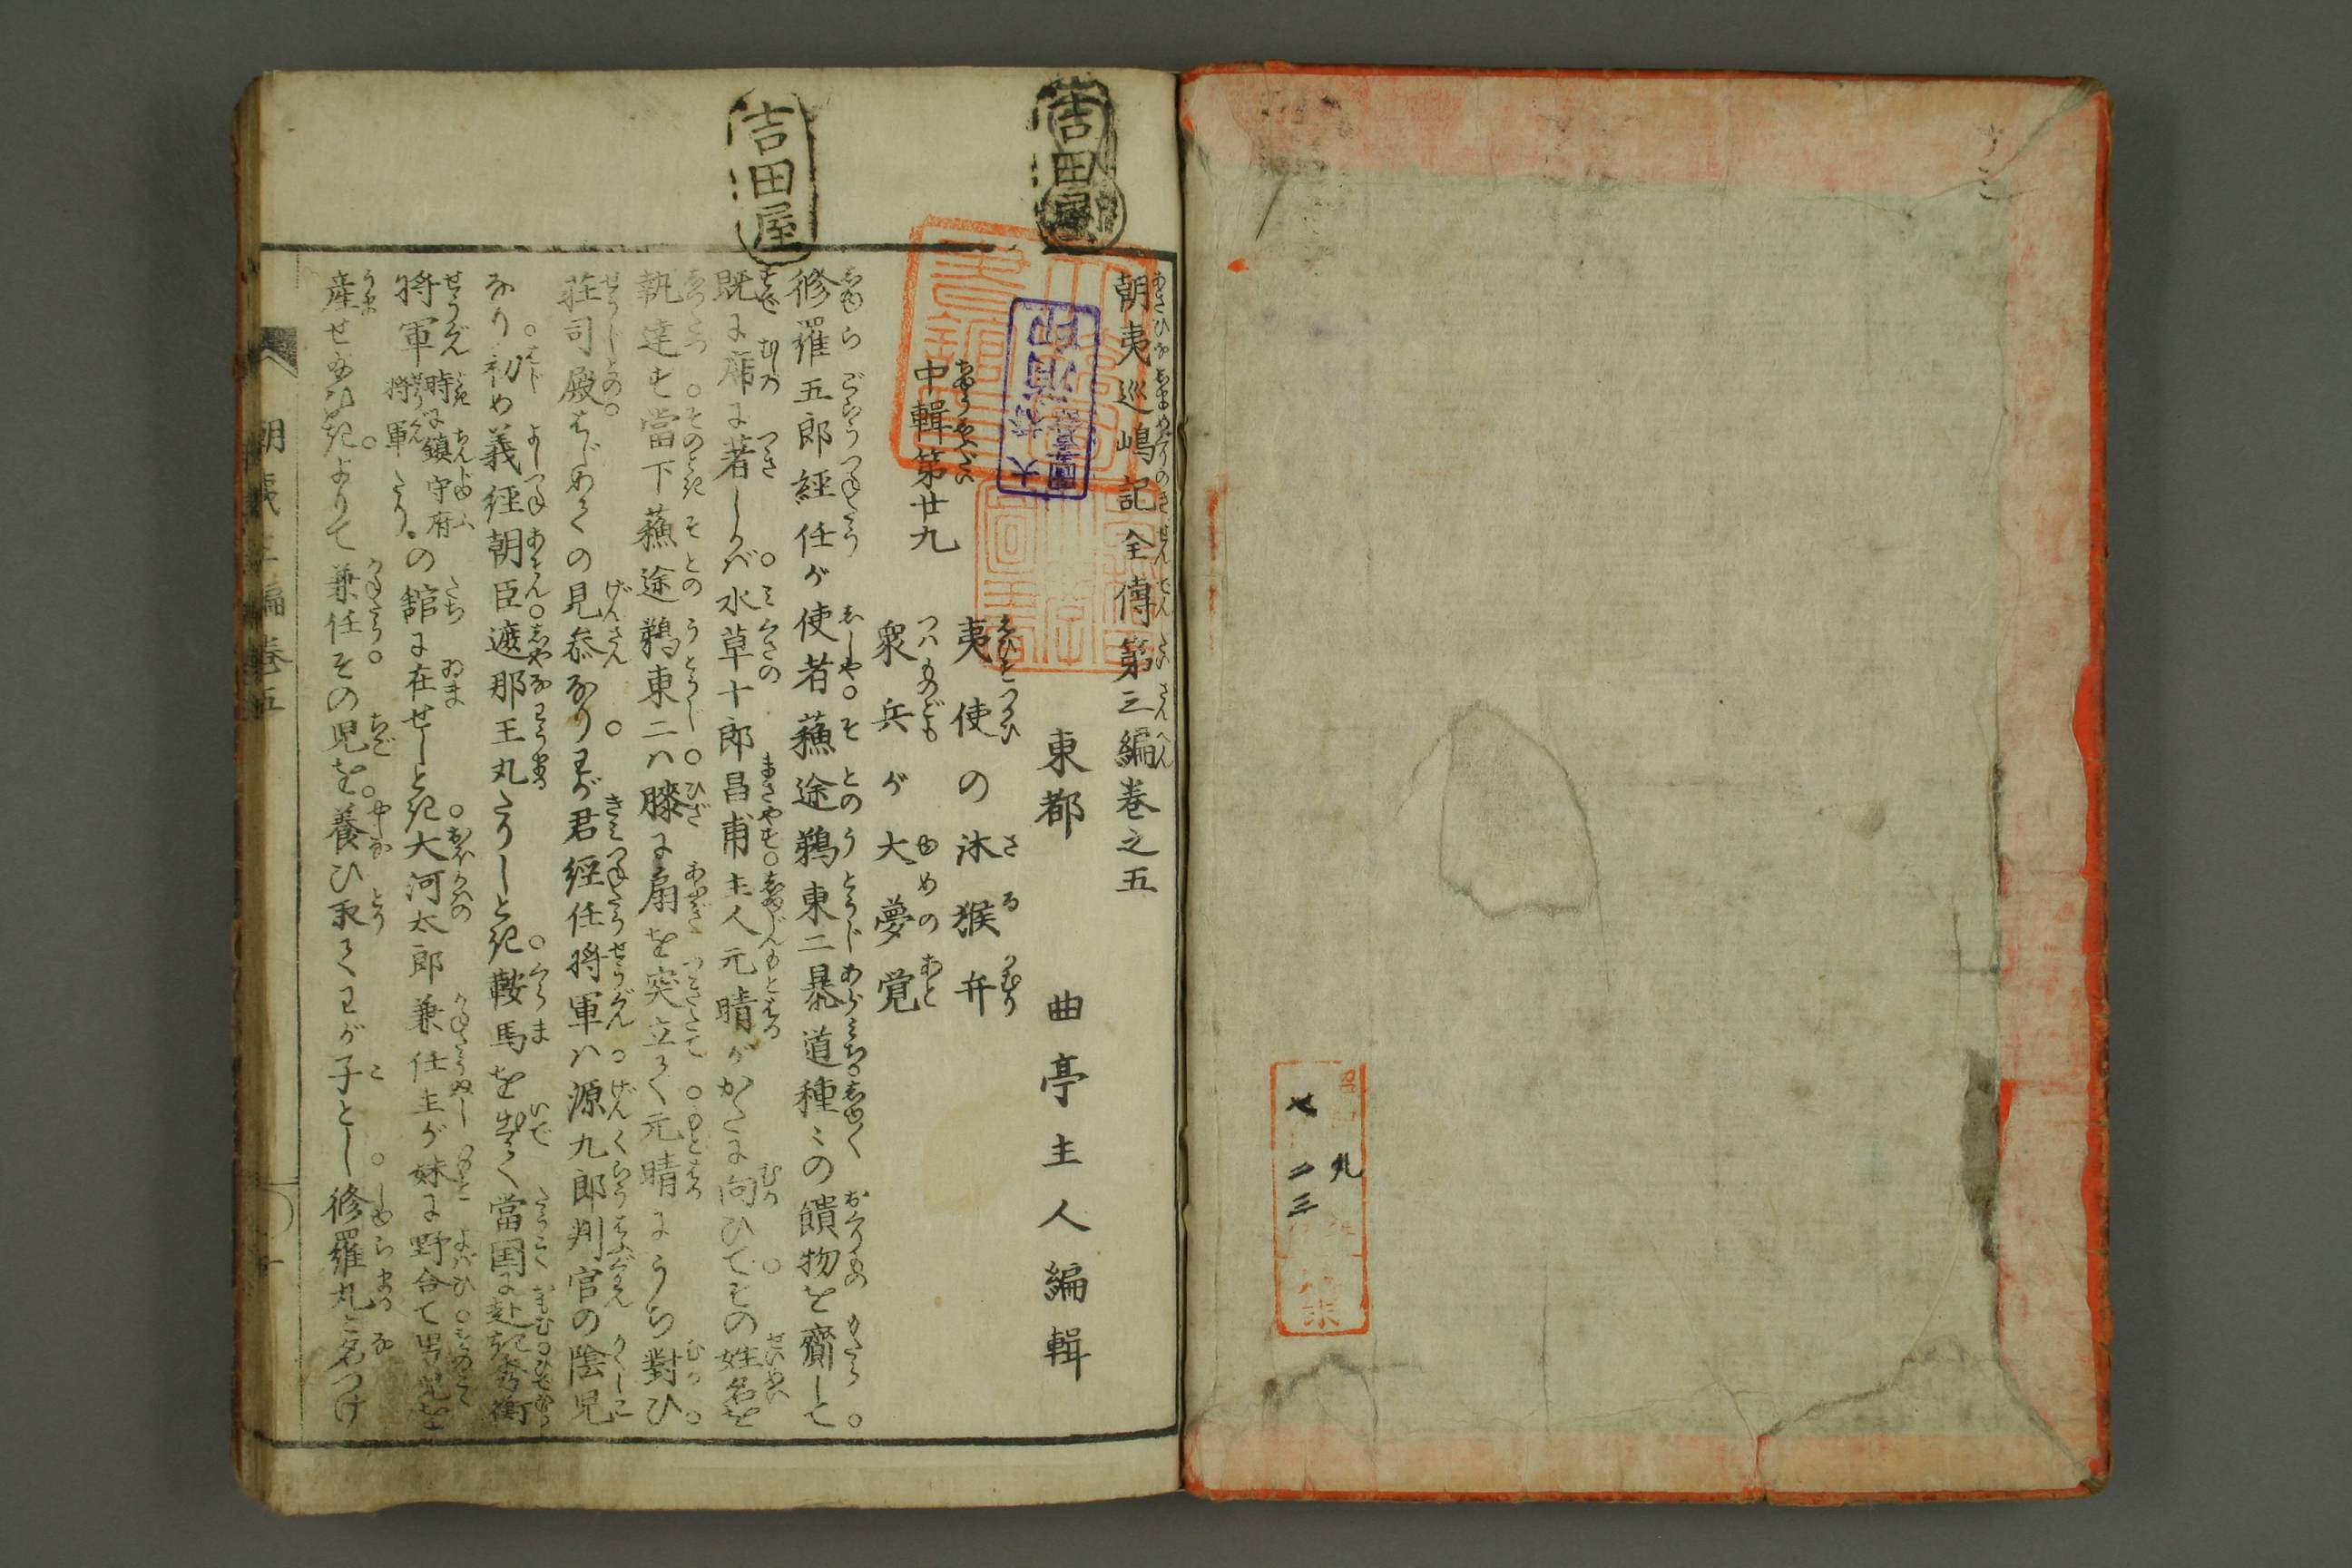 朝夷巡嶋記全傳第三編巻之五
東都 曲亭主人編輯
中輯第廿九
夷使の沐猴弁
衆兵が大夢覚
修羅五郎経任が使者蕪途鵜東二暴道種〻の饋物を齎して
既に席に著しかバ水草十郎昌甫主人元晴がかたに向ひてその姓名を
執達す當下蕪途鵜東二ハ膝に扇を突立て元晴にうち對ひ
荘司殿はじめての見参なりわが君経任将軍ハ源九郎判官の陰児
なり初め義経朝臣遮那王丸たりしとき鞍馬を出て當国に赴き秀衡
将軍 時に鎮守府将軍たり の舘に在せしとき大河太郎兼任主が妹に野合て男児を
産せ給ひきよりて兼任その児を養ひ取てわが子とし修羅丸と名つけ
吉田屋
吉田屋
朝夷三編巻五
七 二三
九